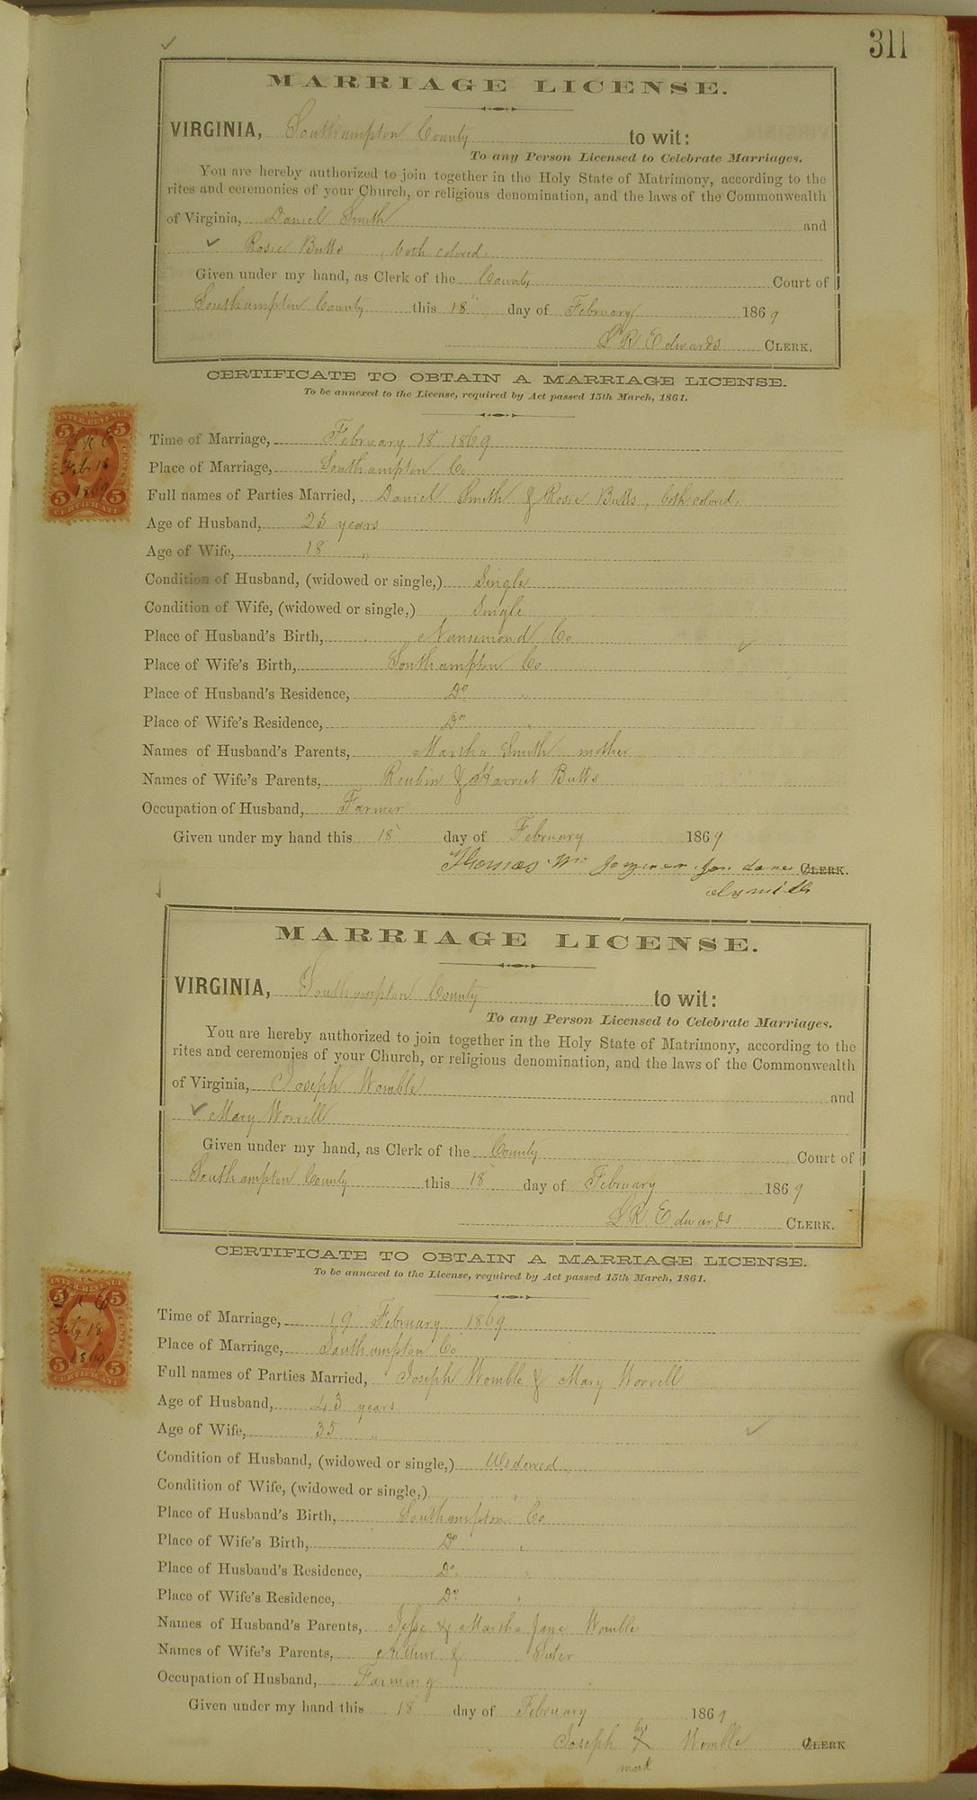 311
MARRIAGE LICENSE.
VIRGINIA, Southampton County to wit:
To any Person Licensed to Celebrate Marriages.
You are hereby authorized to join together in the Holy State of Matrimony, according to the
rites and ceremonies of your Church, or religious denomination, and the laws of the Commonwealth
of Virginia, Daniel Smith and
✓ Rosie Butts, both colored,
Given under my hand, as Clerk of the County Court of
Southampton County this 18 day of February 1869
L R Edwards CLERK.
CERTIFICATE TO OBTAIN A MARRIAGE LICENSE.
To be annexed to the License, required by Act passed 15th March, 1861.
Time of Marriage, February 18 1869
Place of Marriage, Southampton Co
Full names of Parties Married, Daniel Smith & Rosie Butts, both colored,
Age of Husband, 25 years
Age of Wife, 18 "
Condition of Husband, (widowed or single,) Single
Condition of Wife, (widowed or single,) Single
Place of Husband's Birth, Nansemond Co
Place of Wife's Birth, Southampton Co
Place of Husband's Residence, Do "
Place of Wife's Residence, Do "
Names of Husband's Parents, Martha Smith mother
Names of Wife's Parents, Reubin & Harriet Butts
Occupation of Husband, Farmer
Given under my hand this 18 day of February 1869
Thomas Wm Joyner for CLERK.
INTER. REVENUE
5 5
L R E
Feb 18
1869
5 5
CERTIFICATE
MARRIAGE LICENSE.
VIRGINIA, Southampton County to wit:
To any Person Licensed to Celebrate Marriages.
You are hereby authorized to join together in the Holy State of Matrimony, according to the
rites and ceremonies of your Church, or religious denomination, and the laws of the Commonwealth
of Virginia, Joseph Womble and
✓ Mary Worrell
Given under my hand, as Clerk of the County Court of
Southampton County this 18 day of February 1869
L R Edwards CLERK.
CERTIFICATE TO OBTAIN A MARRIAGE LICENSE.
To be annexed to the License, required by Act passed 15th March, 1861.
Time of Marriage, 19 February 1869
Place of Marriage, Southampton Co
Full names of Parties Married, Joseph Womble & Mary Worrell
Age of Husband, 43 years
Age of Wife, 35 "
Condition of Husband, (widowed or single,) Widowed
Condition of Wife, (widowed or single,) "
Place of Husband's Birth, Southampton Co
Place of Wife's Birth, Do "
Place of Husband's Residence, Do "
Place of Wife's Residence, Do "
Names of Husband's Parents, Jesse & Martha Jane Womble
Names of Wife's Parents, & Suter
Occupation of Husband, Farming
Given under my hand this 18 day of February 1869
Joseph X Womble CLERK
INTER. REVENUE
5 5
L R E
Feby 18
1869
5 5
CERTIFICATE